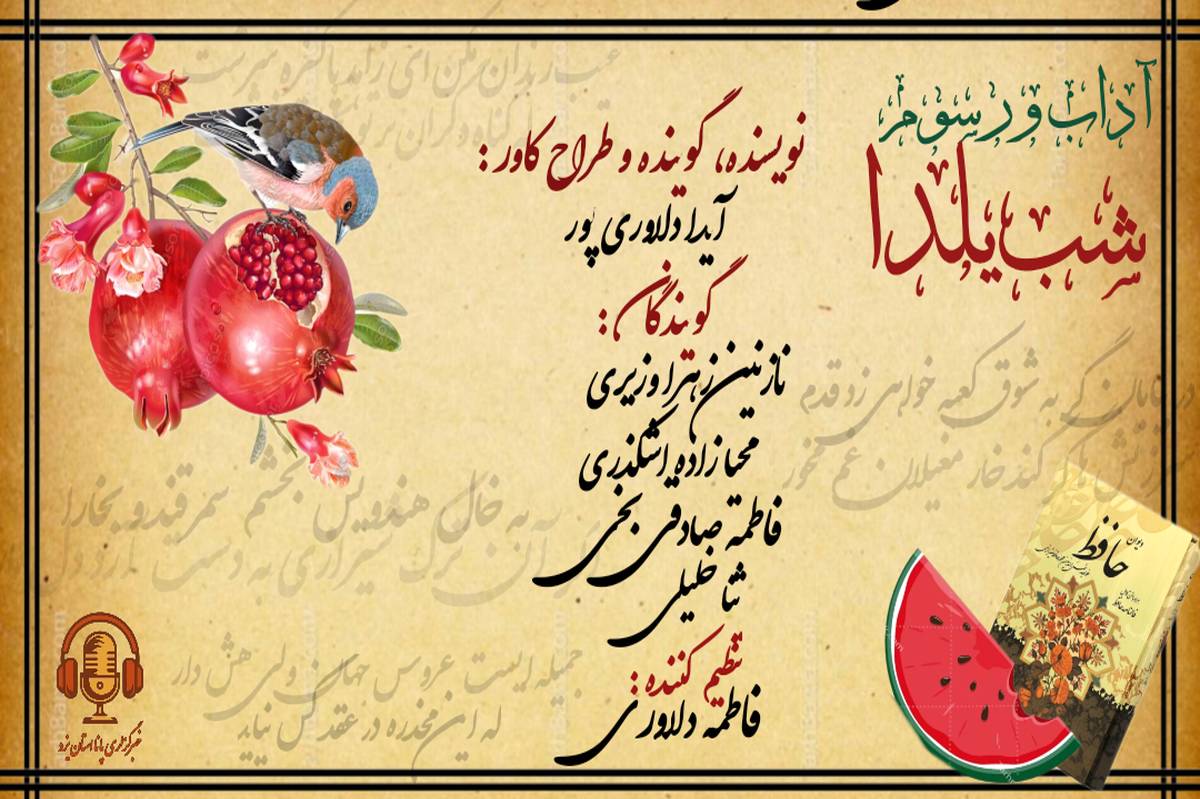 آداب و رسوم
شب یلدا
نویسنده، گوینده و طراح کاور :
آیدا دلاوری پور
گویندگان :
نازنین زهرا وزیری
محیا زاده اشکذری
فاطمه صادقی بخی
ثنا خلیلی
تنظیم کننده :
فاطمه دلاوری
عیب رندان مکن ای زاهد پاکیزه سرشت
که گناه دگران بر تو
در بیابان گر به شوق کعبه خواهی زد قدم
سرزنش ها گر کند خار مغیلان غم مخور
به خال هندویش بخشم سمرقند و بخارا را
آن ترک شیرازی به دست آرد دل
جمیله ایست عروس جهان ولی هش دار
که این مخدره در عقد کس نیاید
دیوان
حافظ
خبرگزاری پانا استان یزد